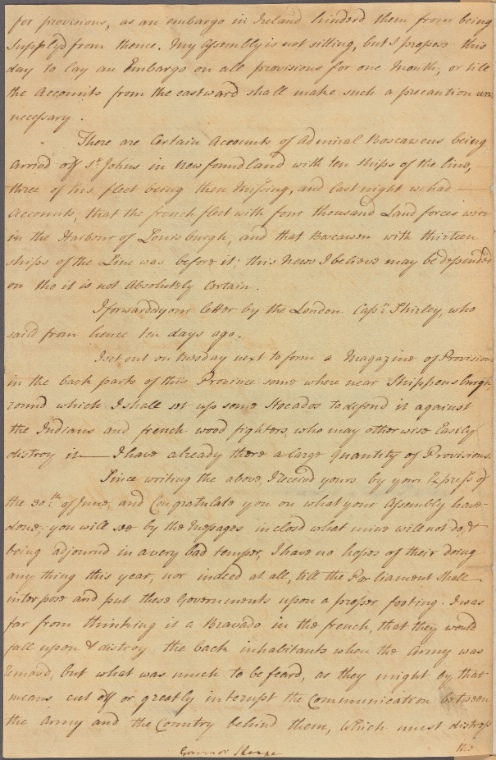 for provisions, as an embargo in Ireland hinderd them from being
supplyd from thence. My Assembly is not sitting, but I propose this
day to lay an Embargo on all provisions for one Month, or till
the Accounts from the eastward shall make such a precaution un
necessary.
There are Certain Accounts of Admiral Boscawens being
arrived off St Johns in Newfoundland with ten ships of the line,
three of his fleet being then missing, and last night we had
Accounts, that the french fleet with four thousand Land forces were
in the Harbour of Louisburgh, and that Boscawen with thirteen
ships of the Line was before it; this News I believe may be depended
on tho it is not Absolutely Certain.
I forwardd your letter by the London Capn Shirley, who
saild from hence ten days ago.
I set out on tuesday next to form a Magazine of Provisions
in the back parts of this Province some where near Shippensburgh
round which I shall set up some Stocados to defend it against
the Indians and french wood fighters, who may other wise Easily
distroy it — I have already there a large Quantity of Provisions.
Since writing the above, I receivd yours by your Express of
the 30th of June, and Congratulate you on what your Assembly have
done, you will see by the Messages inclosd what mine will not do, &
being adjournd in a very bad temper, I have no hopes of their doing
any thing this year, nor indeed at all, till the Parliament shall
interpose and put these Governments upon a proper footing. I was
far from thinking is a Bravado in the french, that they would
fall upon & distroy the back inhabitants when the Army was
removd, but what was much to be feard, as they might by that
means cut off or greatly interupt the Communication between
the Army and the Country behind them, which must distress
the
Governor Sharpe